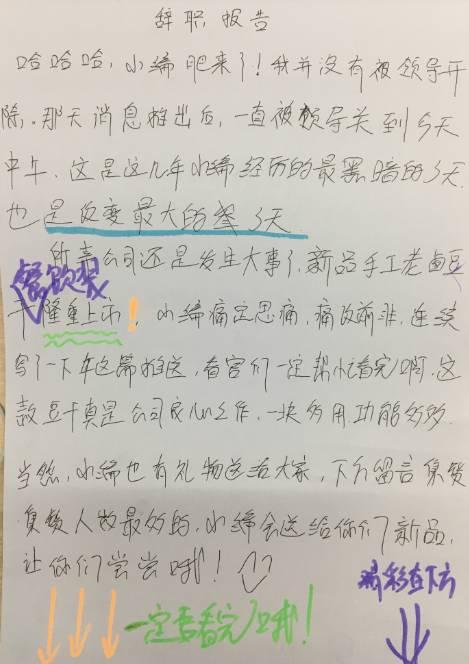 辞职报告
哈哈哈,小编肥来了!我并没有被领导开
除。那天消息推出后,一直被领导关到今天
中午,这是这几年小编经历的最黑暗的3天,
也是改变最大的3天
所幸公司还是发生大事了,新品手工老卤豆
干隆重上市!小编痛定思痛,痛改前非,连续
写了一下午这篇推送,看官们一定帮忙看完啊,这
款豆干真是公司良心之作,一块多用功能多多.
当然,小编也有礼物送给大家,下方留言集赞
集赞人数最多的,小编会送给你们新品,
让你们尝尝哦!
精彩在下方
一定要看完哦!